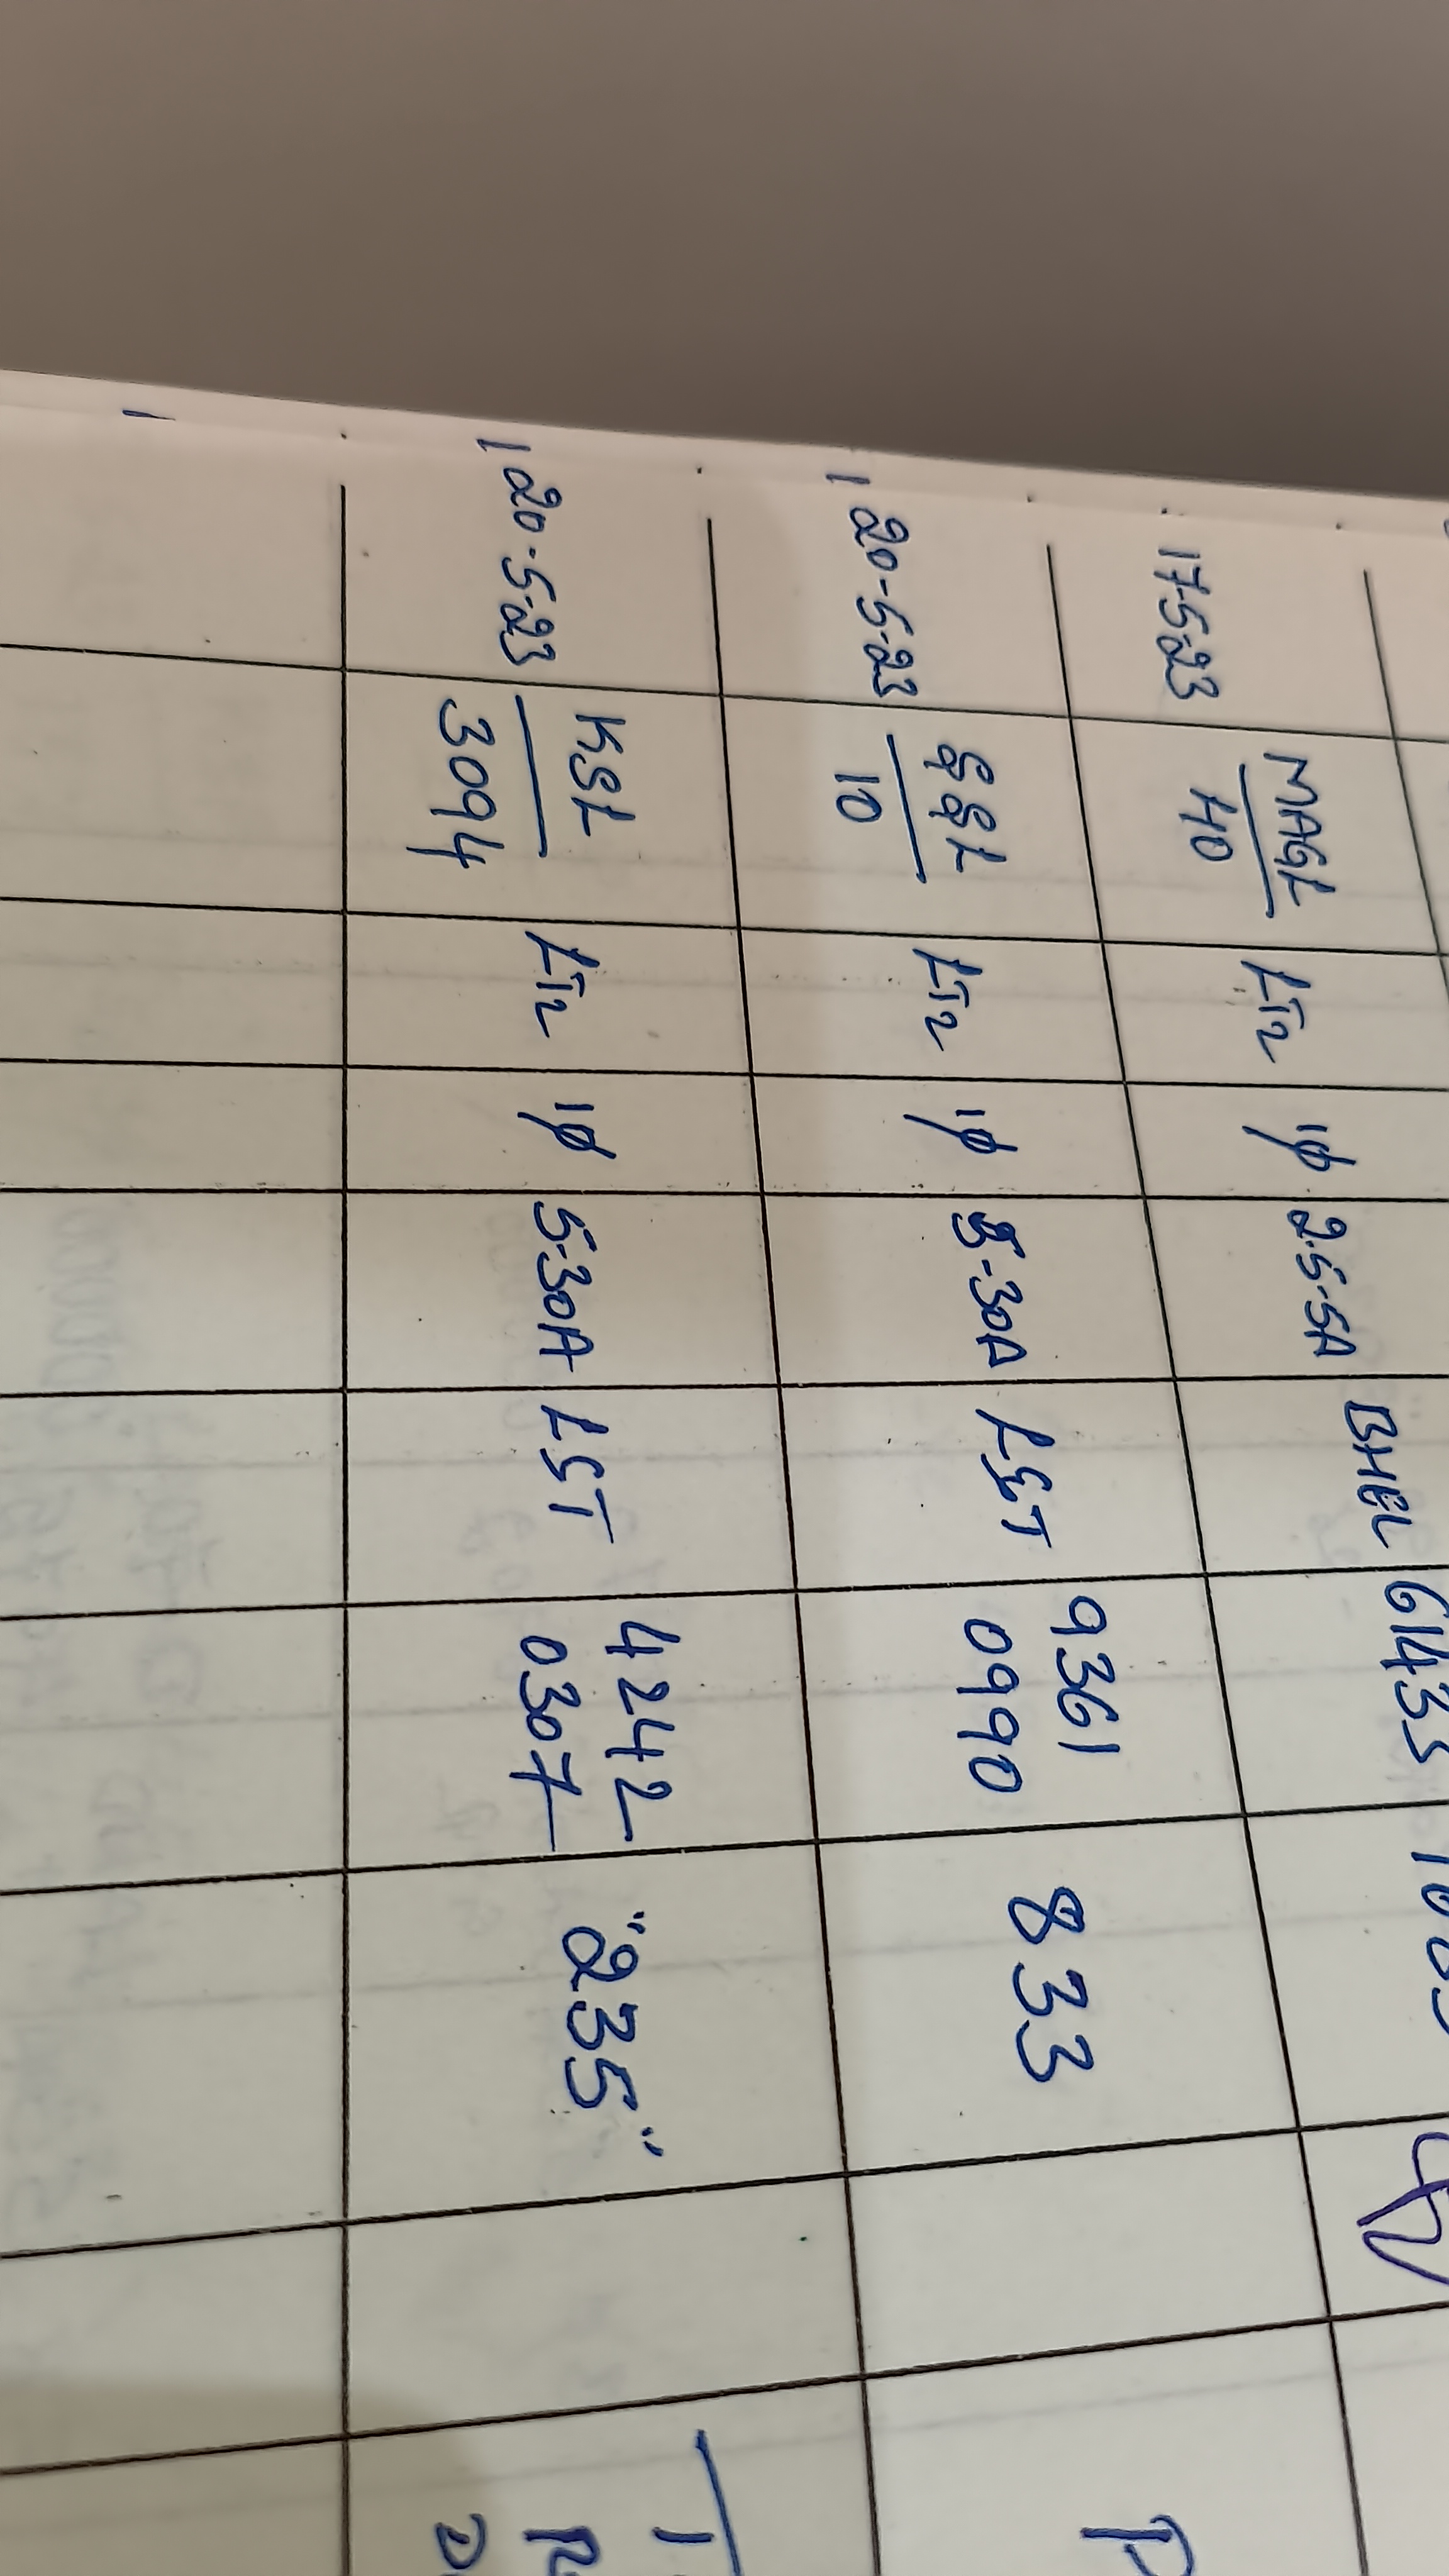 17-5-23 MAGL LT2 1φ 2.5-5A BHEL 61435
40
20-5-23 GGL LT2 1φ 5-30A L&T 9361 833
10 0990
20-5-23 KSL LT2 1φ 5-30A L&T 4242 "235"
3094 0307